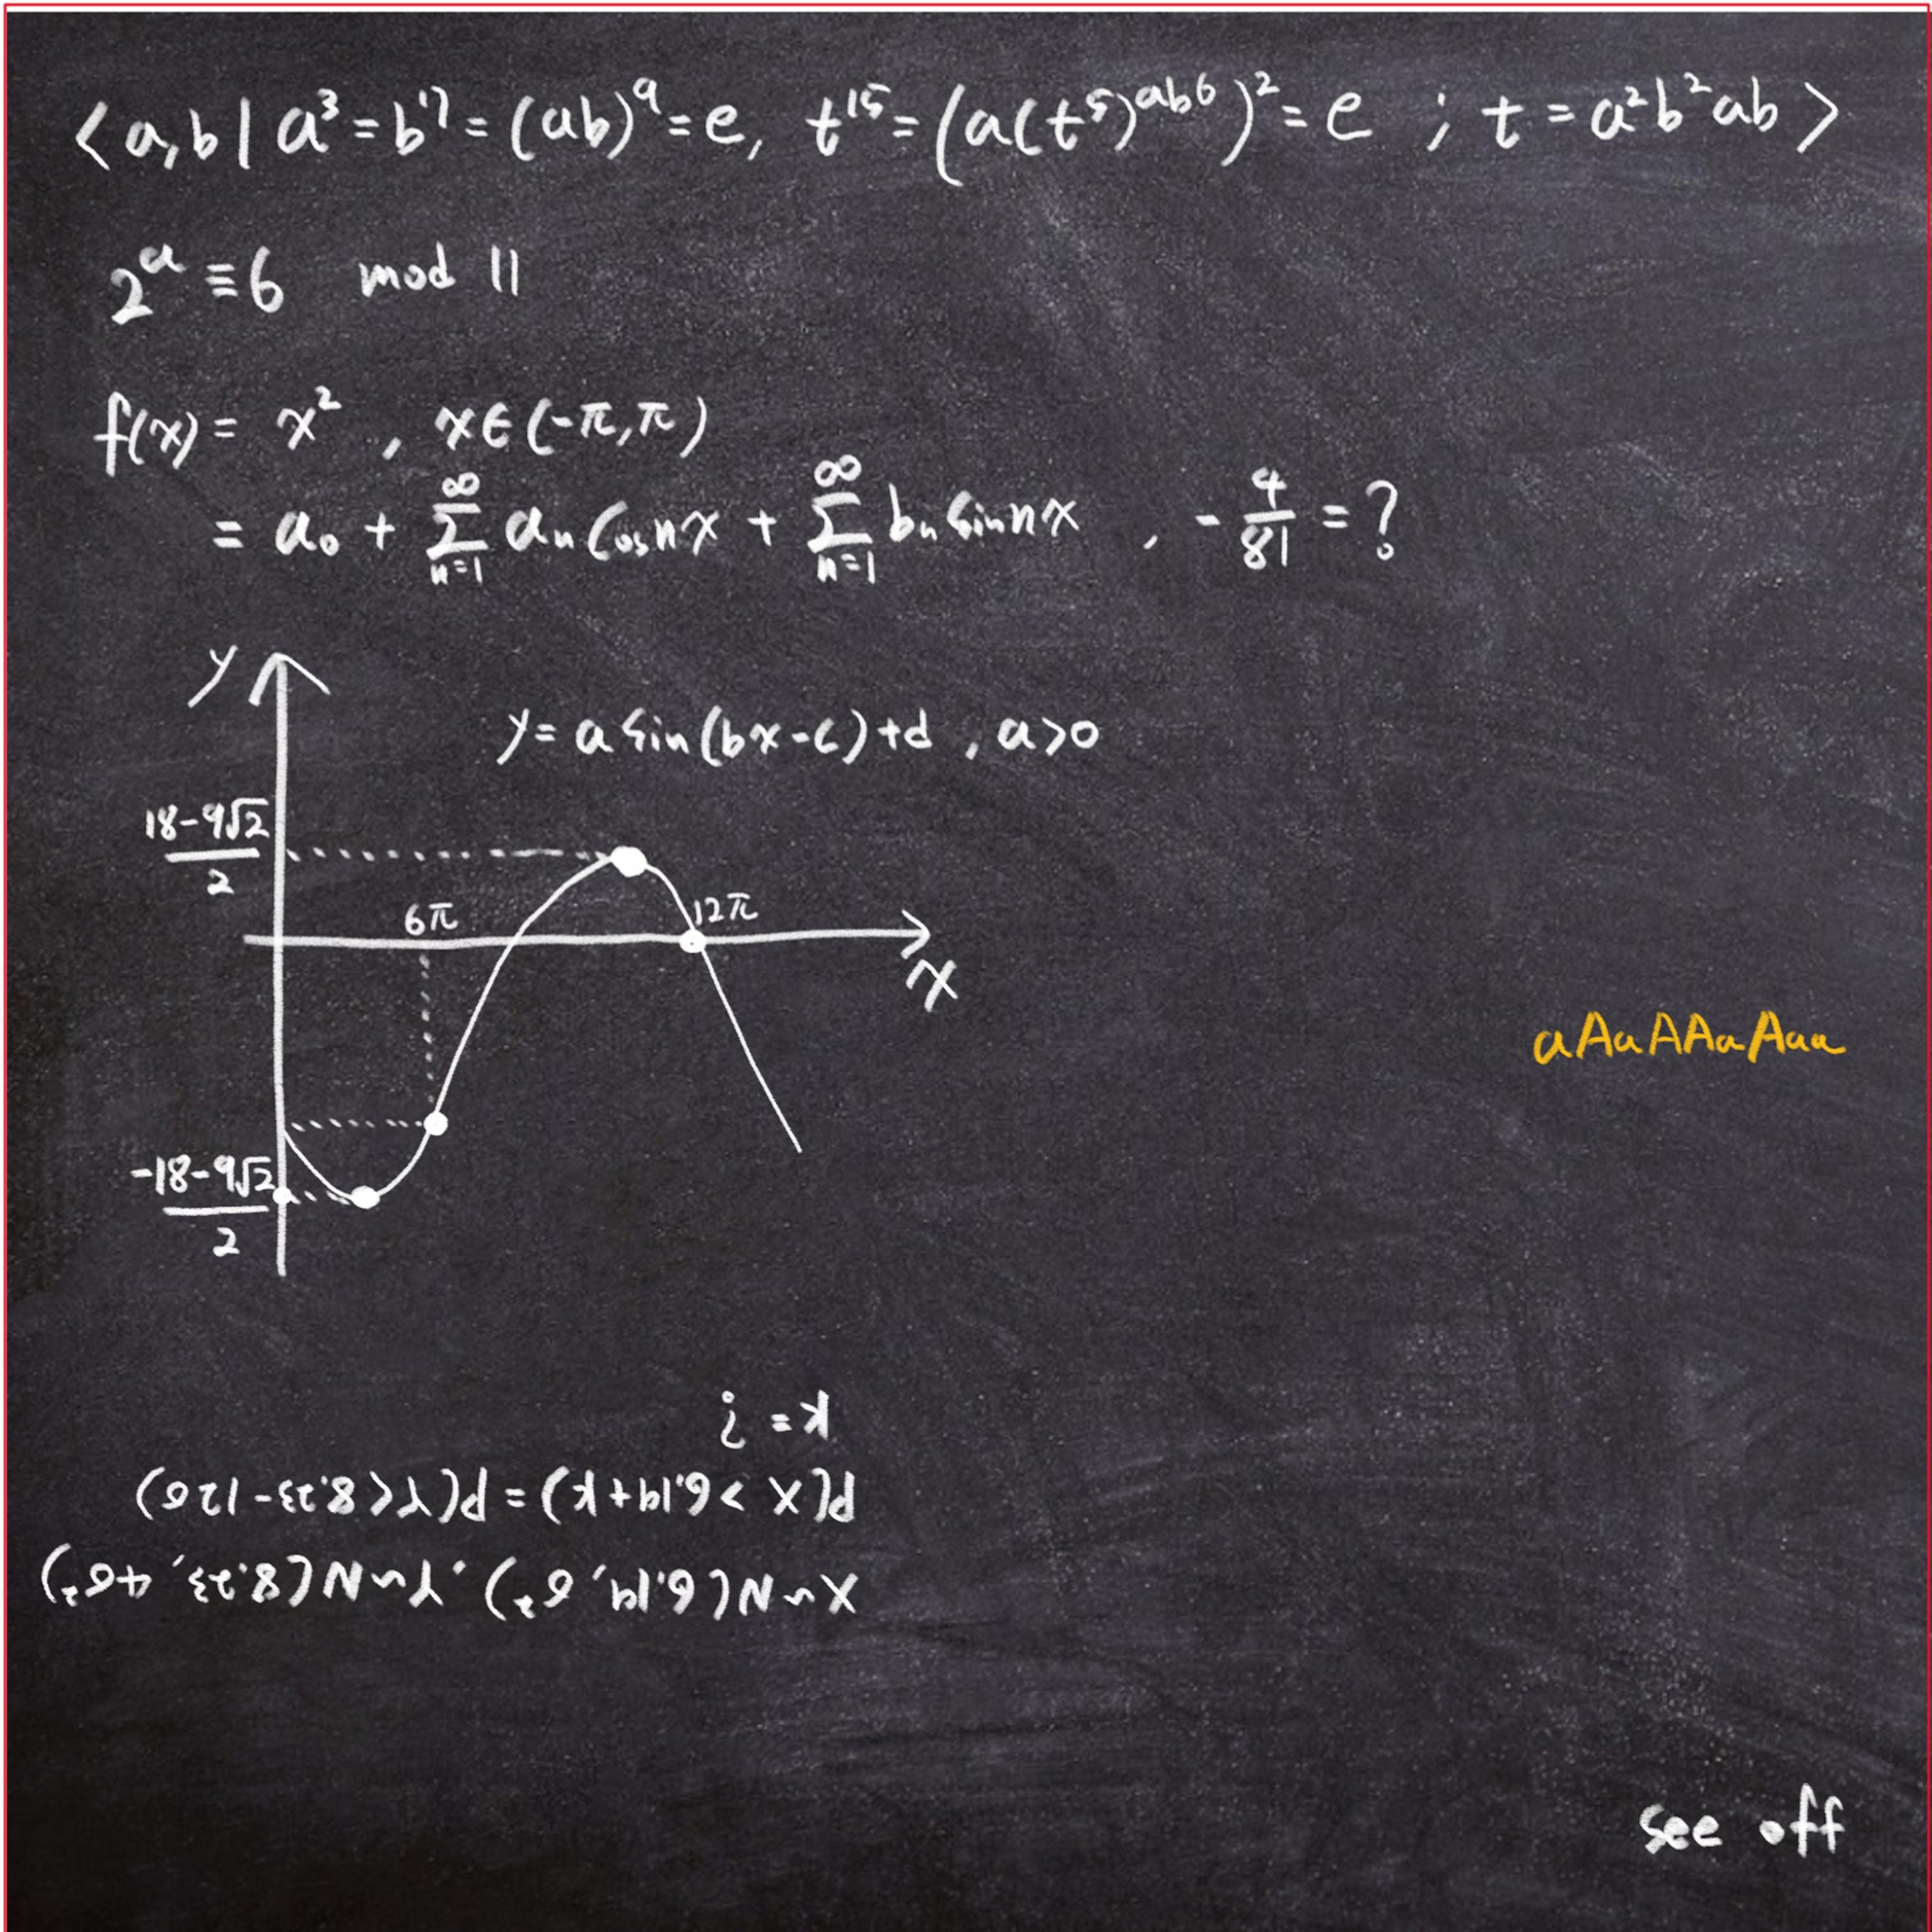 <a,b | a³=b¹⁷=(ab)⁹=e, t¹⁵=(a(t⁵)^{ab⁶})²=e ; t=a²b²ab>
2ᵃ≡6 mod 11
f(x)= x² , x∈(-π,π)
= a₀ + ∑_{n=1}^{∞} aₙ Cos nx + ∑_{n=1}^{∞} bₙ Sin nx , -4/81=?
y
y= a Sin(bx-c)+d , a>0
(18-9√2)/2
6π
12π
x
aAaAAaAaa
(-18-9√2)/2
k= ?
P(X > 6.19+k)=P(Y<8.23-12σ)
X~N(6.19, σ²), Y~N(8.23, 4σ²)
see off